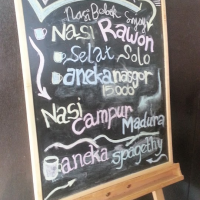 Nasi Bakar
Nasi Rawon
Selat Solo
aneka nasgor
15.000
Nasi
Campur
Madura
aneka spagethy